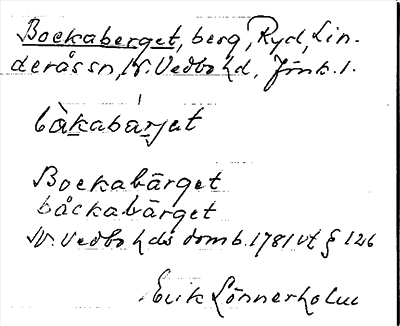 Bockaberget, berg, Ryd, Lin-
deråssn, N. Vedbo hd, Jönk. l.
bàkabarjət
Bockabärget
båckabärget
N. Vedbo hds domb. 1781 vt § 126
Erik Lönnerholm